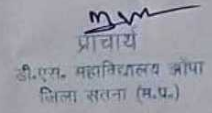 प्राचार्य
डी.एस. महाविद्यालय
जिला सतना (म.प्र.)